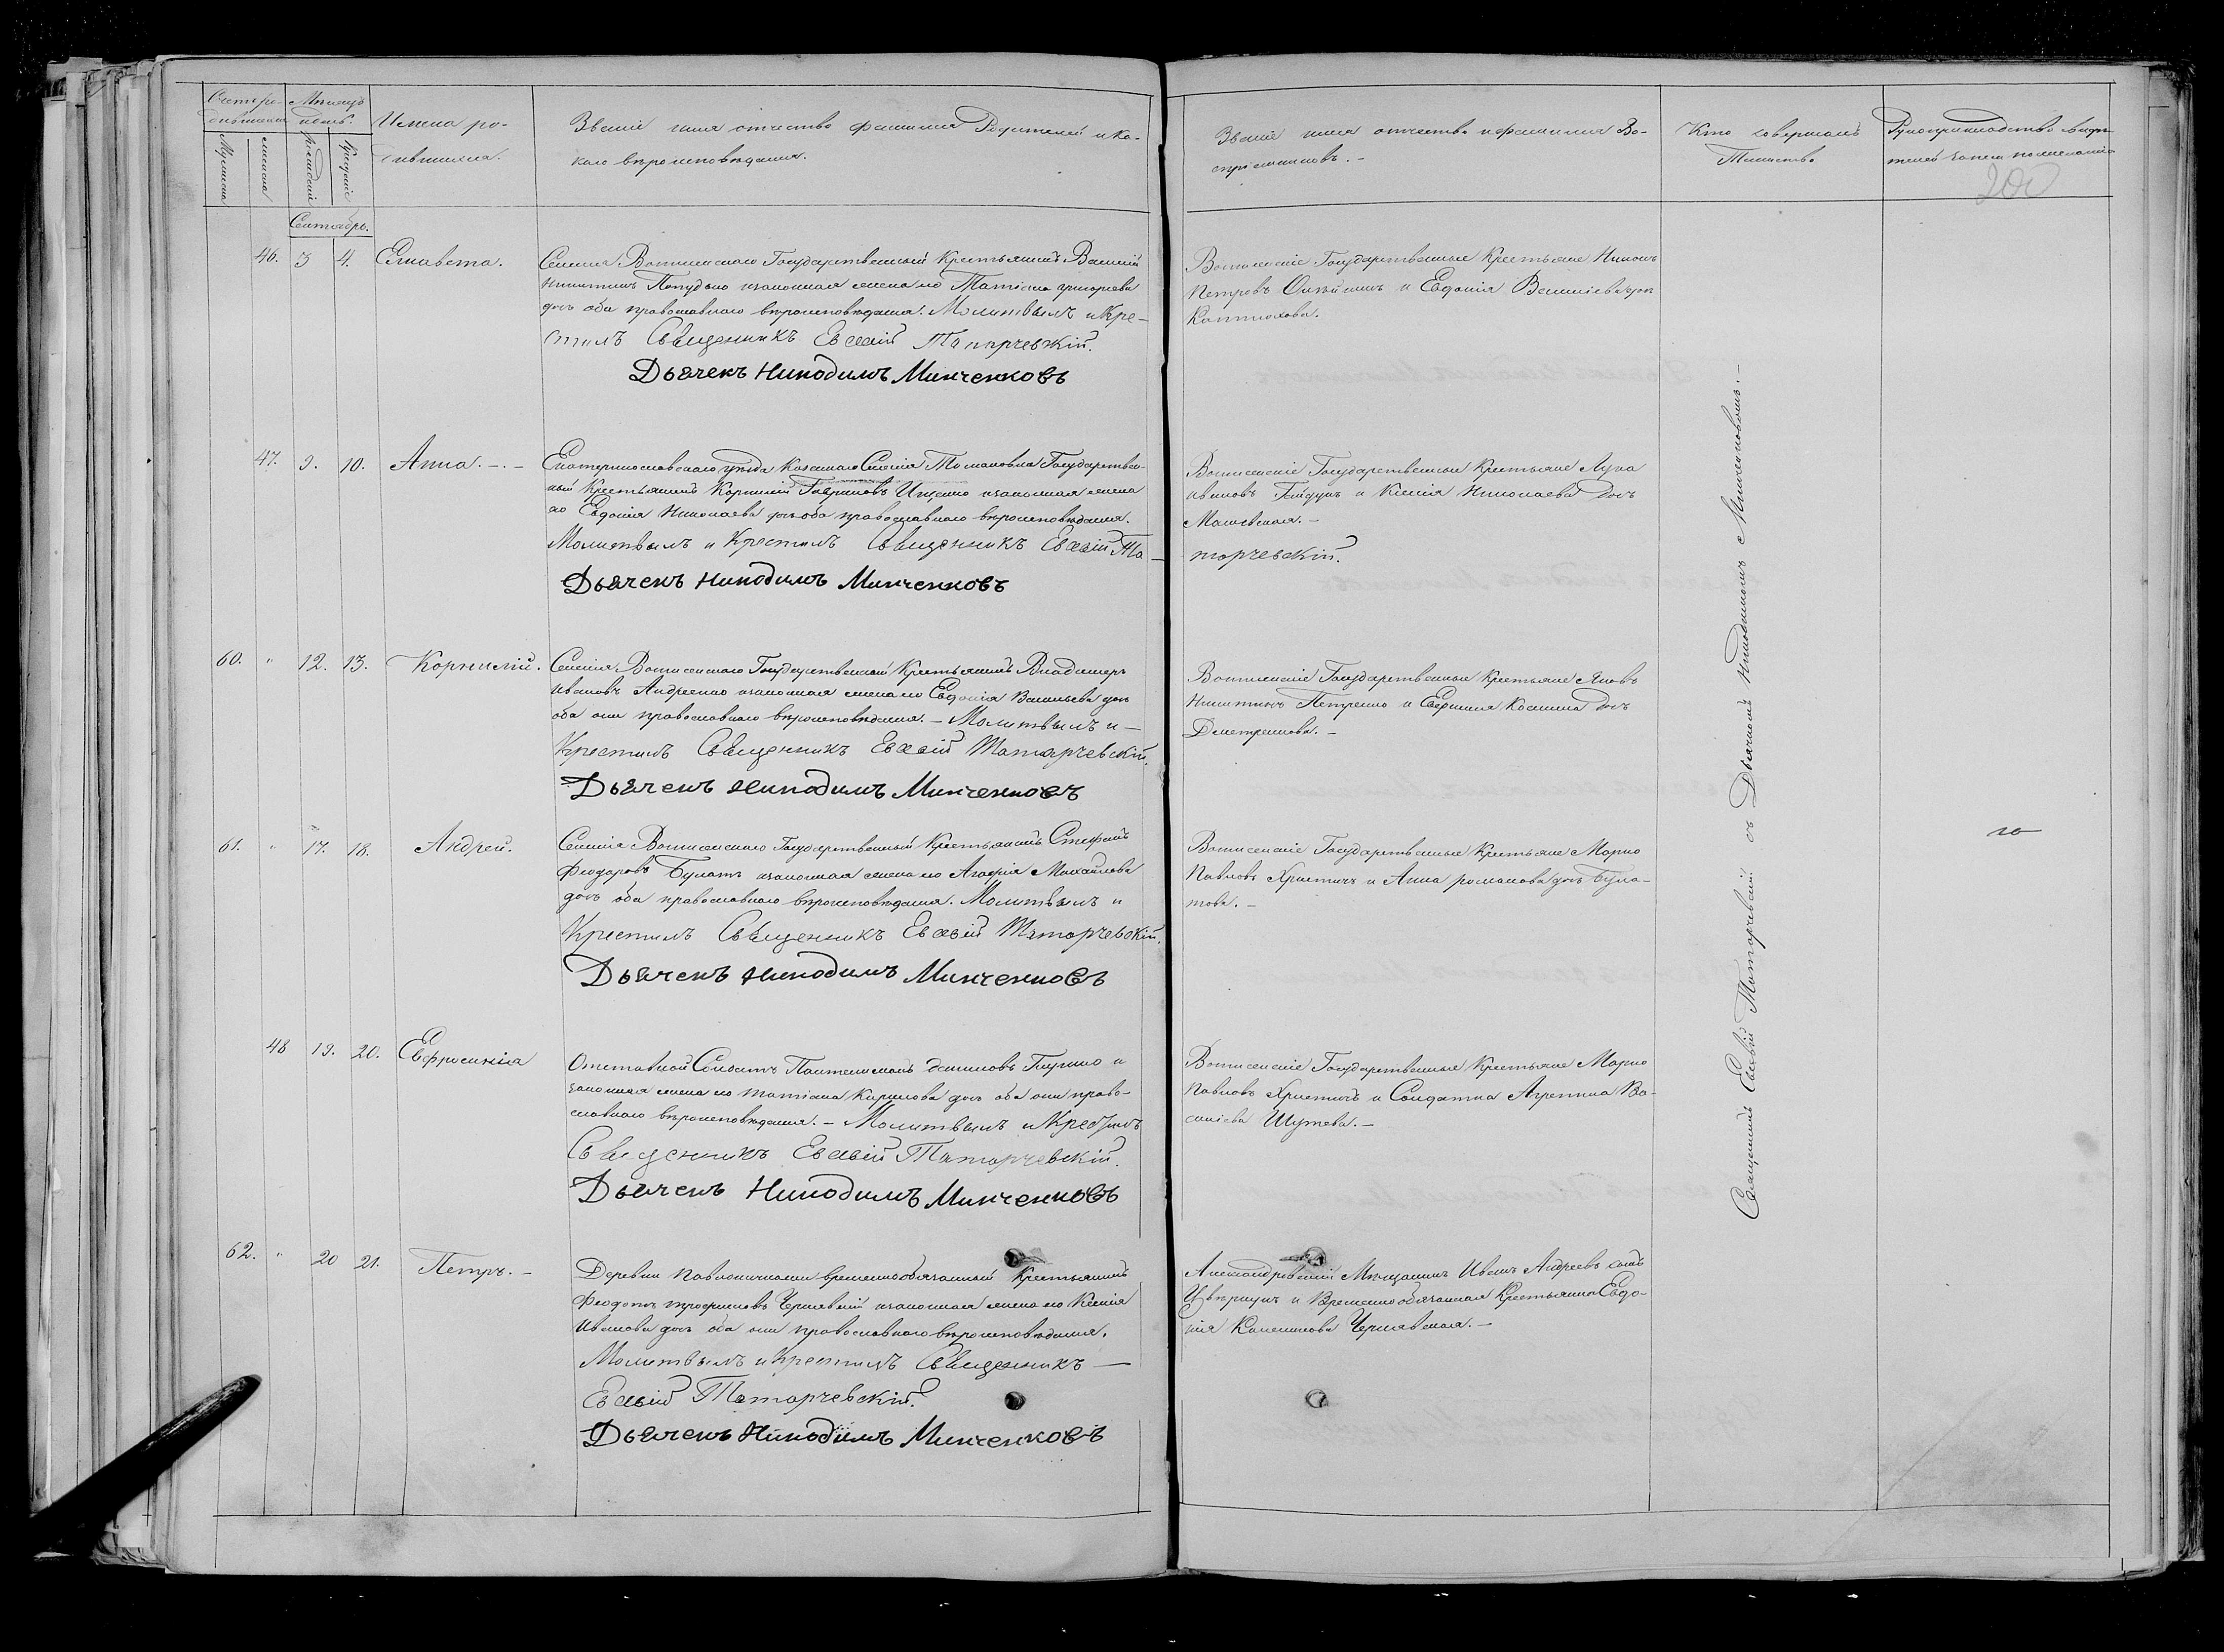 Счетъ ро-
дившихся
Мѣсяцъ
и день.
Имена ро-
дившихся.
Званіе имя отчество фамилія Родителей и ка-
кого вѣроисповѣданія.
Мужеска
женска
рожденія
крещенія
Сентябрь.
46. 3 4. Елисавета.
Селенія Воскисенскаго Государственный Крестьянинъ Василій
Никитинъ и законная жена его Татіана григорьева
дочь оба православнаго вѣроисповѣданія. Молитвилъ и Кре-
стилъ Священникъ Евсевій Татарчевскій.
Дьячекъ Никодимъ Минченковъ
47. 9. 10. Анна. - . -
Екатеринославскаго уѣзда Казеннаго Селенія Томаковка Государствен-
ный Крестьянинъ Корнилій Гавриловъ Ищенко и законная жена
его Евдокія Николаева дочь оба православнаго вѣроисповѣданія.
Молитвилъ и Крестилъ Священникъ Евсевій Та-
Дьячекъ Никодимъ Минченковъ
60. " 12. 13. Корнилій.
Селенія Государственный Крестьянинъ Владимеръ
Ивановъ Андреенко и законная жена его Евдокія Васильева дочь
оба они православнаго вѣроисповѣданія. - Молитвилъ и -
Крестилъ Священникъ Евсевій Татарчевскій.
Дьячекъ Никодимъ Минченковъ
61. " 17. 18. Андрей.
Селенія Государственный Крестьянинъ Стефанъ
Феодоровъ Булатъ и законная жена его Агафія Михайлова
дочь оба православнаго вѣроисповѣданія. Молитвилъ и
Крестилъ Священникъ Евсевій Татарчевскій.
Дьячекъ Никодимъ Минченковъ
48 19. 20. Евфросинія
Отставной Солдатъ Пантелимонъ Даниловъ и
законная жена его Татіана Кирилова дочь оба они право-
славнаго вѣроисповѣданія. - Молитвилъ и Крестилъ
Священникъ Евсевій Татарчевскій.
Дьячекъ Никодимъ Минченковъ
62. " 20 21. Петръ. -
Деревни временнообязанный Крестьянинъ
Феодотъ трофимовъ Чернявскій и законная жена его Ксенія
Иванова дочь оба они православнаго вѣроисповѣданія.
Молитвилъ и крестилъ Священникъ -
Евсевій Татарчевскій.
Дьячекъ Никодимъ Минченковъ
Званіе имя отчество и фамилія Во-
спріемниковъ. -
Кто совершалъ
Таинство
Рукоприкладство свидѣ-
телей записи по желанію
200
Государственные Крестьяне Никонъ
Петровъ и Евдокія Василіева дочь
Государственные Крестьяне Лука
Ивановъ Гайдукъ и Ксенія Николаева Дочь
тарчевскій.
Государственные Крестьяне Яковъ
Никитинъ Петренко и Космина Дочь
Дметренкова. -
Государственные Крестьяне Марко
Павловъ Христичъ и Анна романова дочь Була-
това. -
Государственные Крестьяне Марко
Павловъ Христичъ и Солдатка Агрепина Ва-
силіева Шутева. -
Александровскій Мѣщанинъ Иванъ Андреевъ сынъ
Цвѣркунъ и Временнообязанная Крестьянка Евдо-
кія Чернявская. -
Священникъ Евсевій Татарчевскій съ Дьячкомъ Никодимомъ Минченковымъ. -